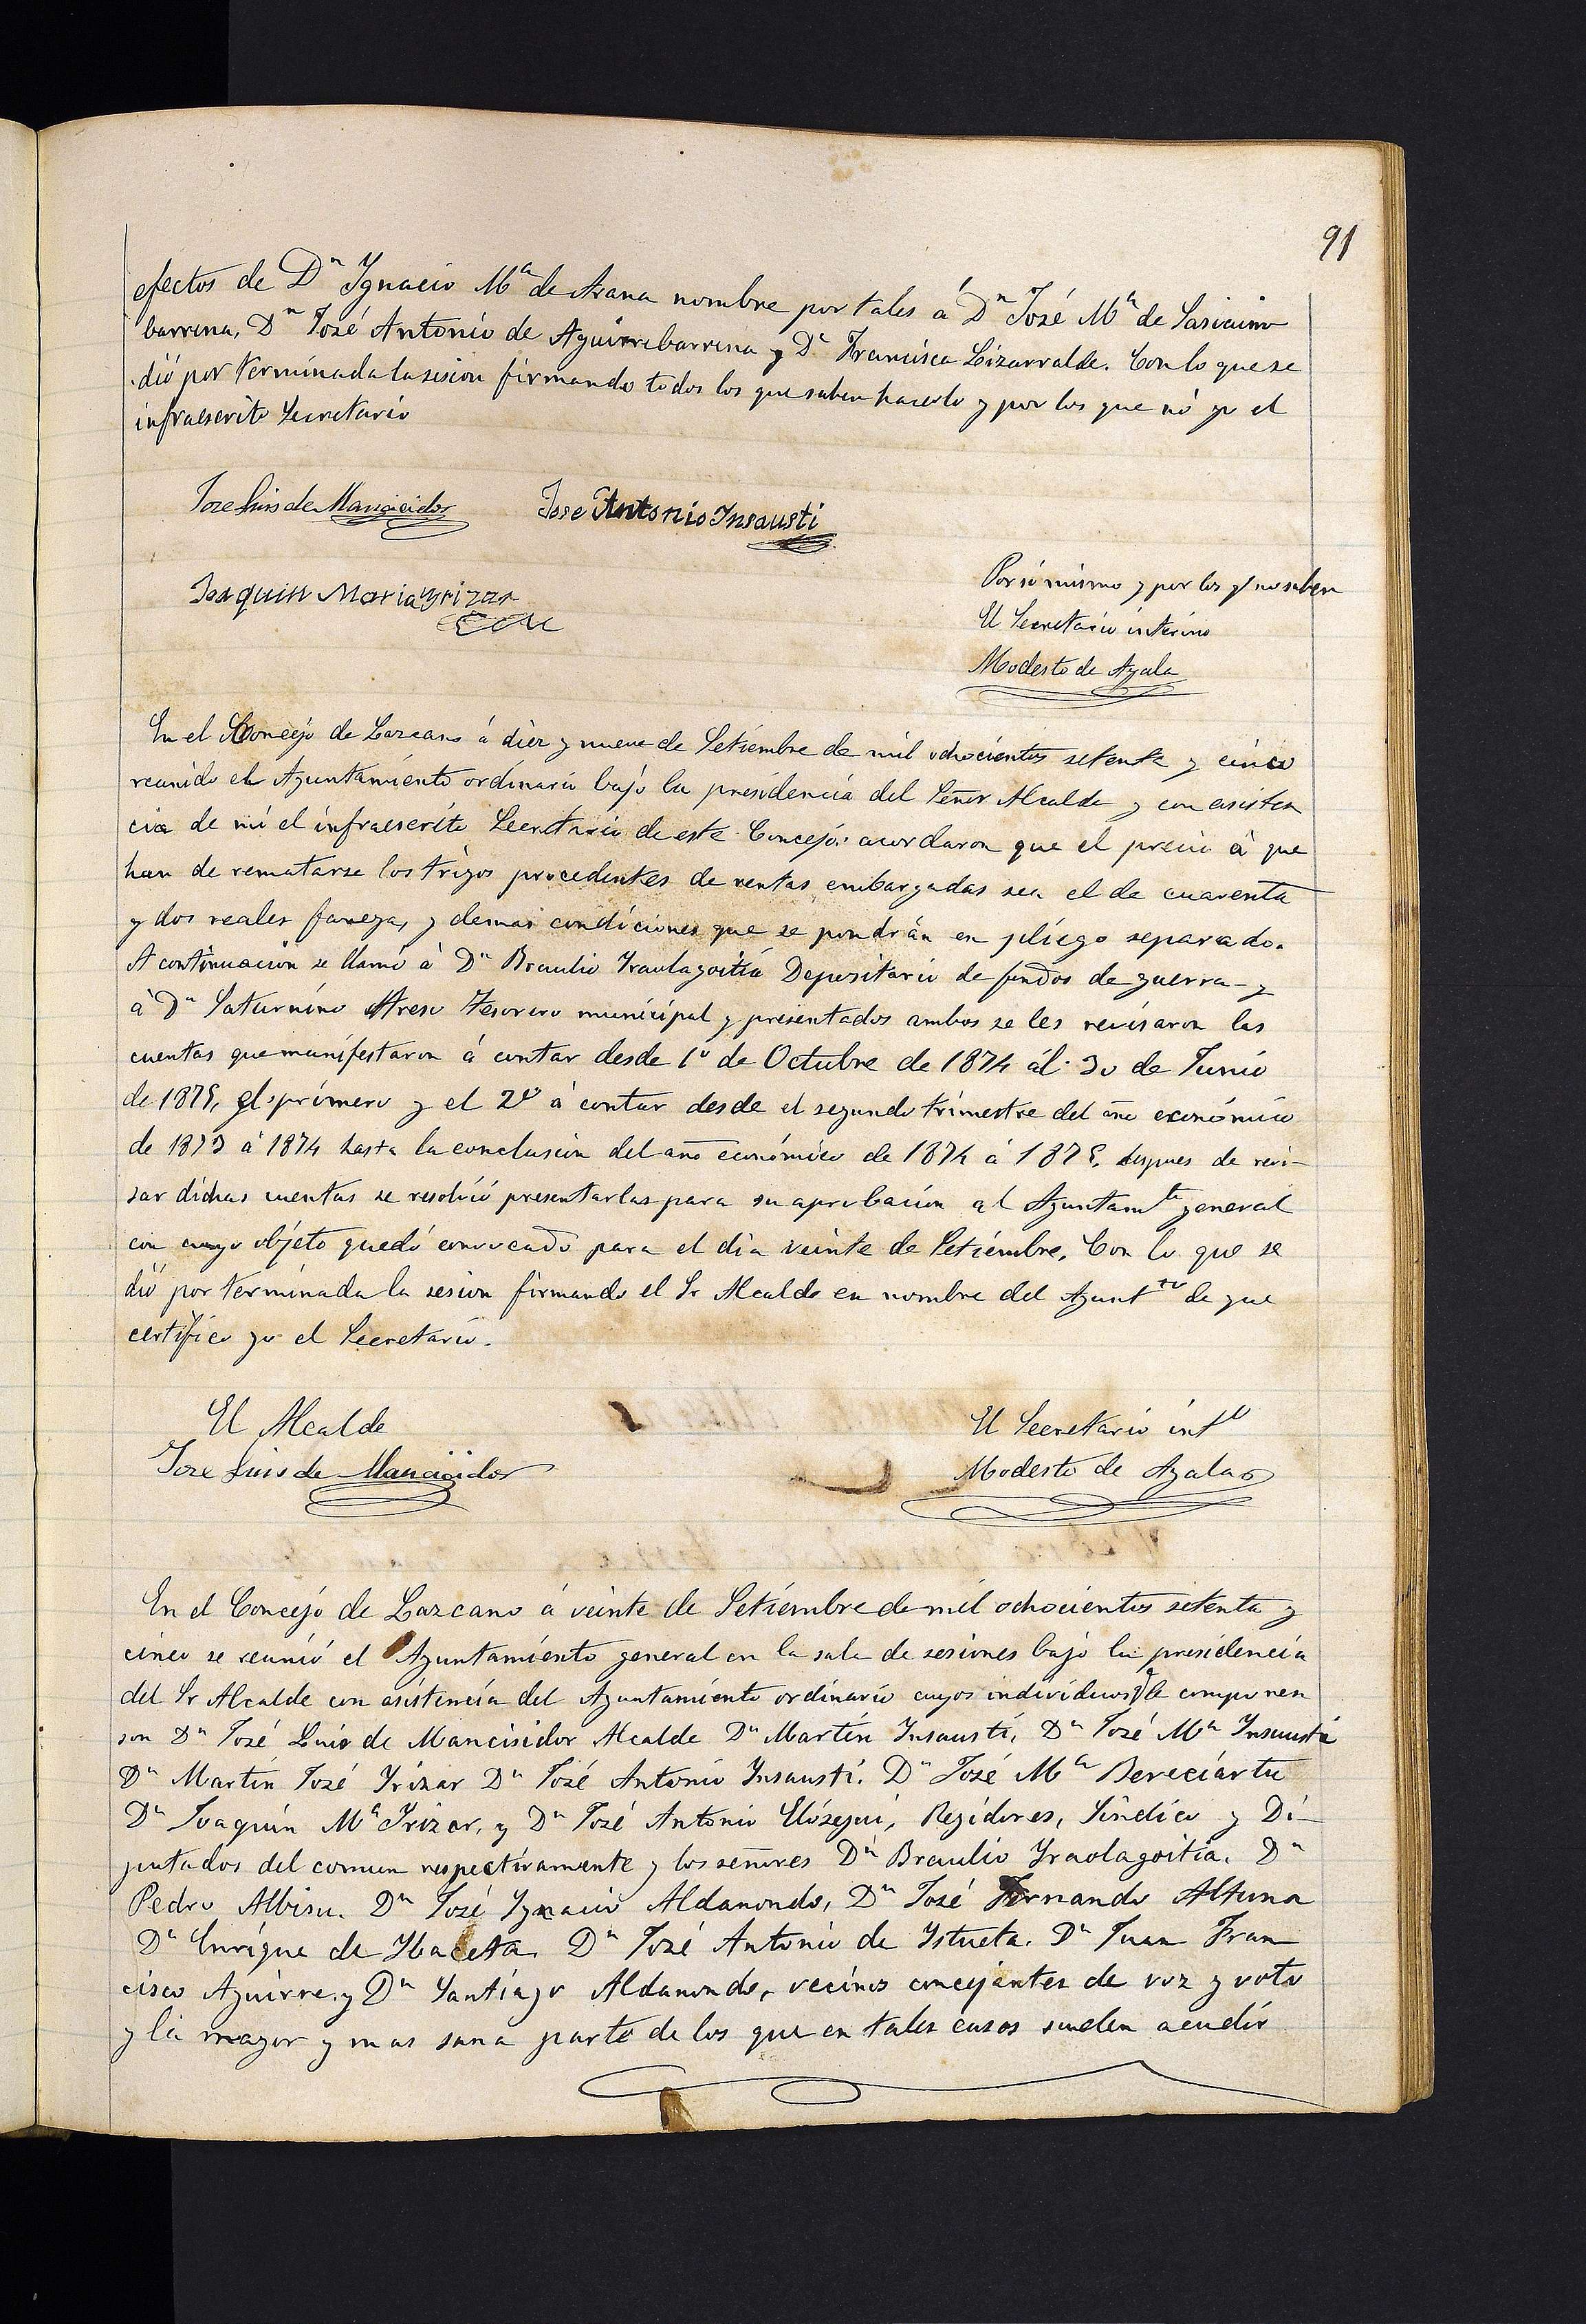 91
efectos de Dn Ygnacio Ma de Arana nombre por tales á Dn José Ma de
barrena, Dn José Antonio de Aguirrebarrena y Da Francisca Lizarralde. Con lo que se
dió por terminada la sesion firmando todos los que saben hacerlo y por los que nó yo el
infraescrito Secretario
Jose Luis de Mancicidor Jose Antonio Insausti
Por si mismo y por los q/ no saben
Joaquin Maria Yrizar
El Secretario interino
Modesto de Ayala
En el Concejo de Lazcano á diez y nueve de Setiembre de mil ochocientos setenta y cinco
reunido el Ayuntamiento ordinario bajo la presidencia del Señor Alcalde y con asisten
cia de mi el infraescrito Secretario de este Concejo: acordaron que el precio á que
han de rematarse los trigos procedentes de rentas embargadas sea el de cuarenta
y dos reales fanega, y demas condiciones que se pondrán en pliego separado.
A continuacion se llamó á Dn Braulio Yraolagoitia Depositario de fondos de guerra - y
á Dn Saturnino Tesorero municipal y presentados ambos se les revisaron las
cuentas que manifestaron á contar desde 1o de Octubre de 1874 ál 30 de Junio
de 1875, el primero y el 2o á contar desde el segundo trimestre del año económico
de 1873 á 1874 hasta la conclusion del año económico de 1874 á 1875. despues de revi-
sar dichas cuentas se resolvió presentarlas para su aprobacion al Ayuntamto general
con cuyo objeto quedó convocado para el dia veinte de Setiembre. Con lo que se
dió por terminada la sesion firmando el Sr Alcalde en nombre del Ayuntto de que
certifico yo el Secretario.
El Alcalde El Secretario into
Jose Luis de Mancicidor Modesto de Ayala
En el Concejo de Lazcano á veinte de Setiembre de mil ochocientos setenta y
cinco se reunió el Ayuntamiento general en la sala de sesiones bajo la presidencia
del Sr Alcalde con asistencia del Ayuntamiento ordinario cuyos individuos q le componen
son Dn José Luis de Mancisidor Alcalde Dn Martin Insausti, Dn José Ma Insausti
Dn Martin José Yrizar Dn José Antonio Ynsausti. Dn José Ma Bereciartu
Dn Joaquin Ma Yrizar, y Dn José Antonio Elósegui, Regidores, Síndico y Di-
putados del comun respectivamente y los señores Dn Braulio Yraolagoitia. Dn
Pedro Albisu. Dn José Ygnacio Aldanondo, Dn José Fernando Altuna
Dn Enrique de Ybaceta. Dn José Antonio de Ystueta. Dn Juan Fran
cisco Aguirre, y Dn Santiago Aldanondo, vecinos concejantes de voz y voto
y la mayor y mas sana parte de los que en tales casos suelen acudir